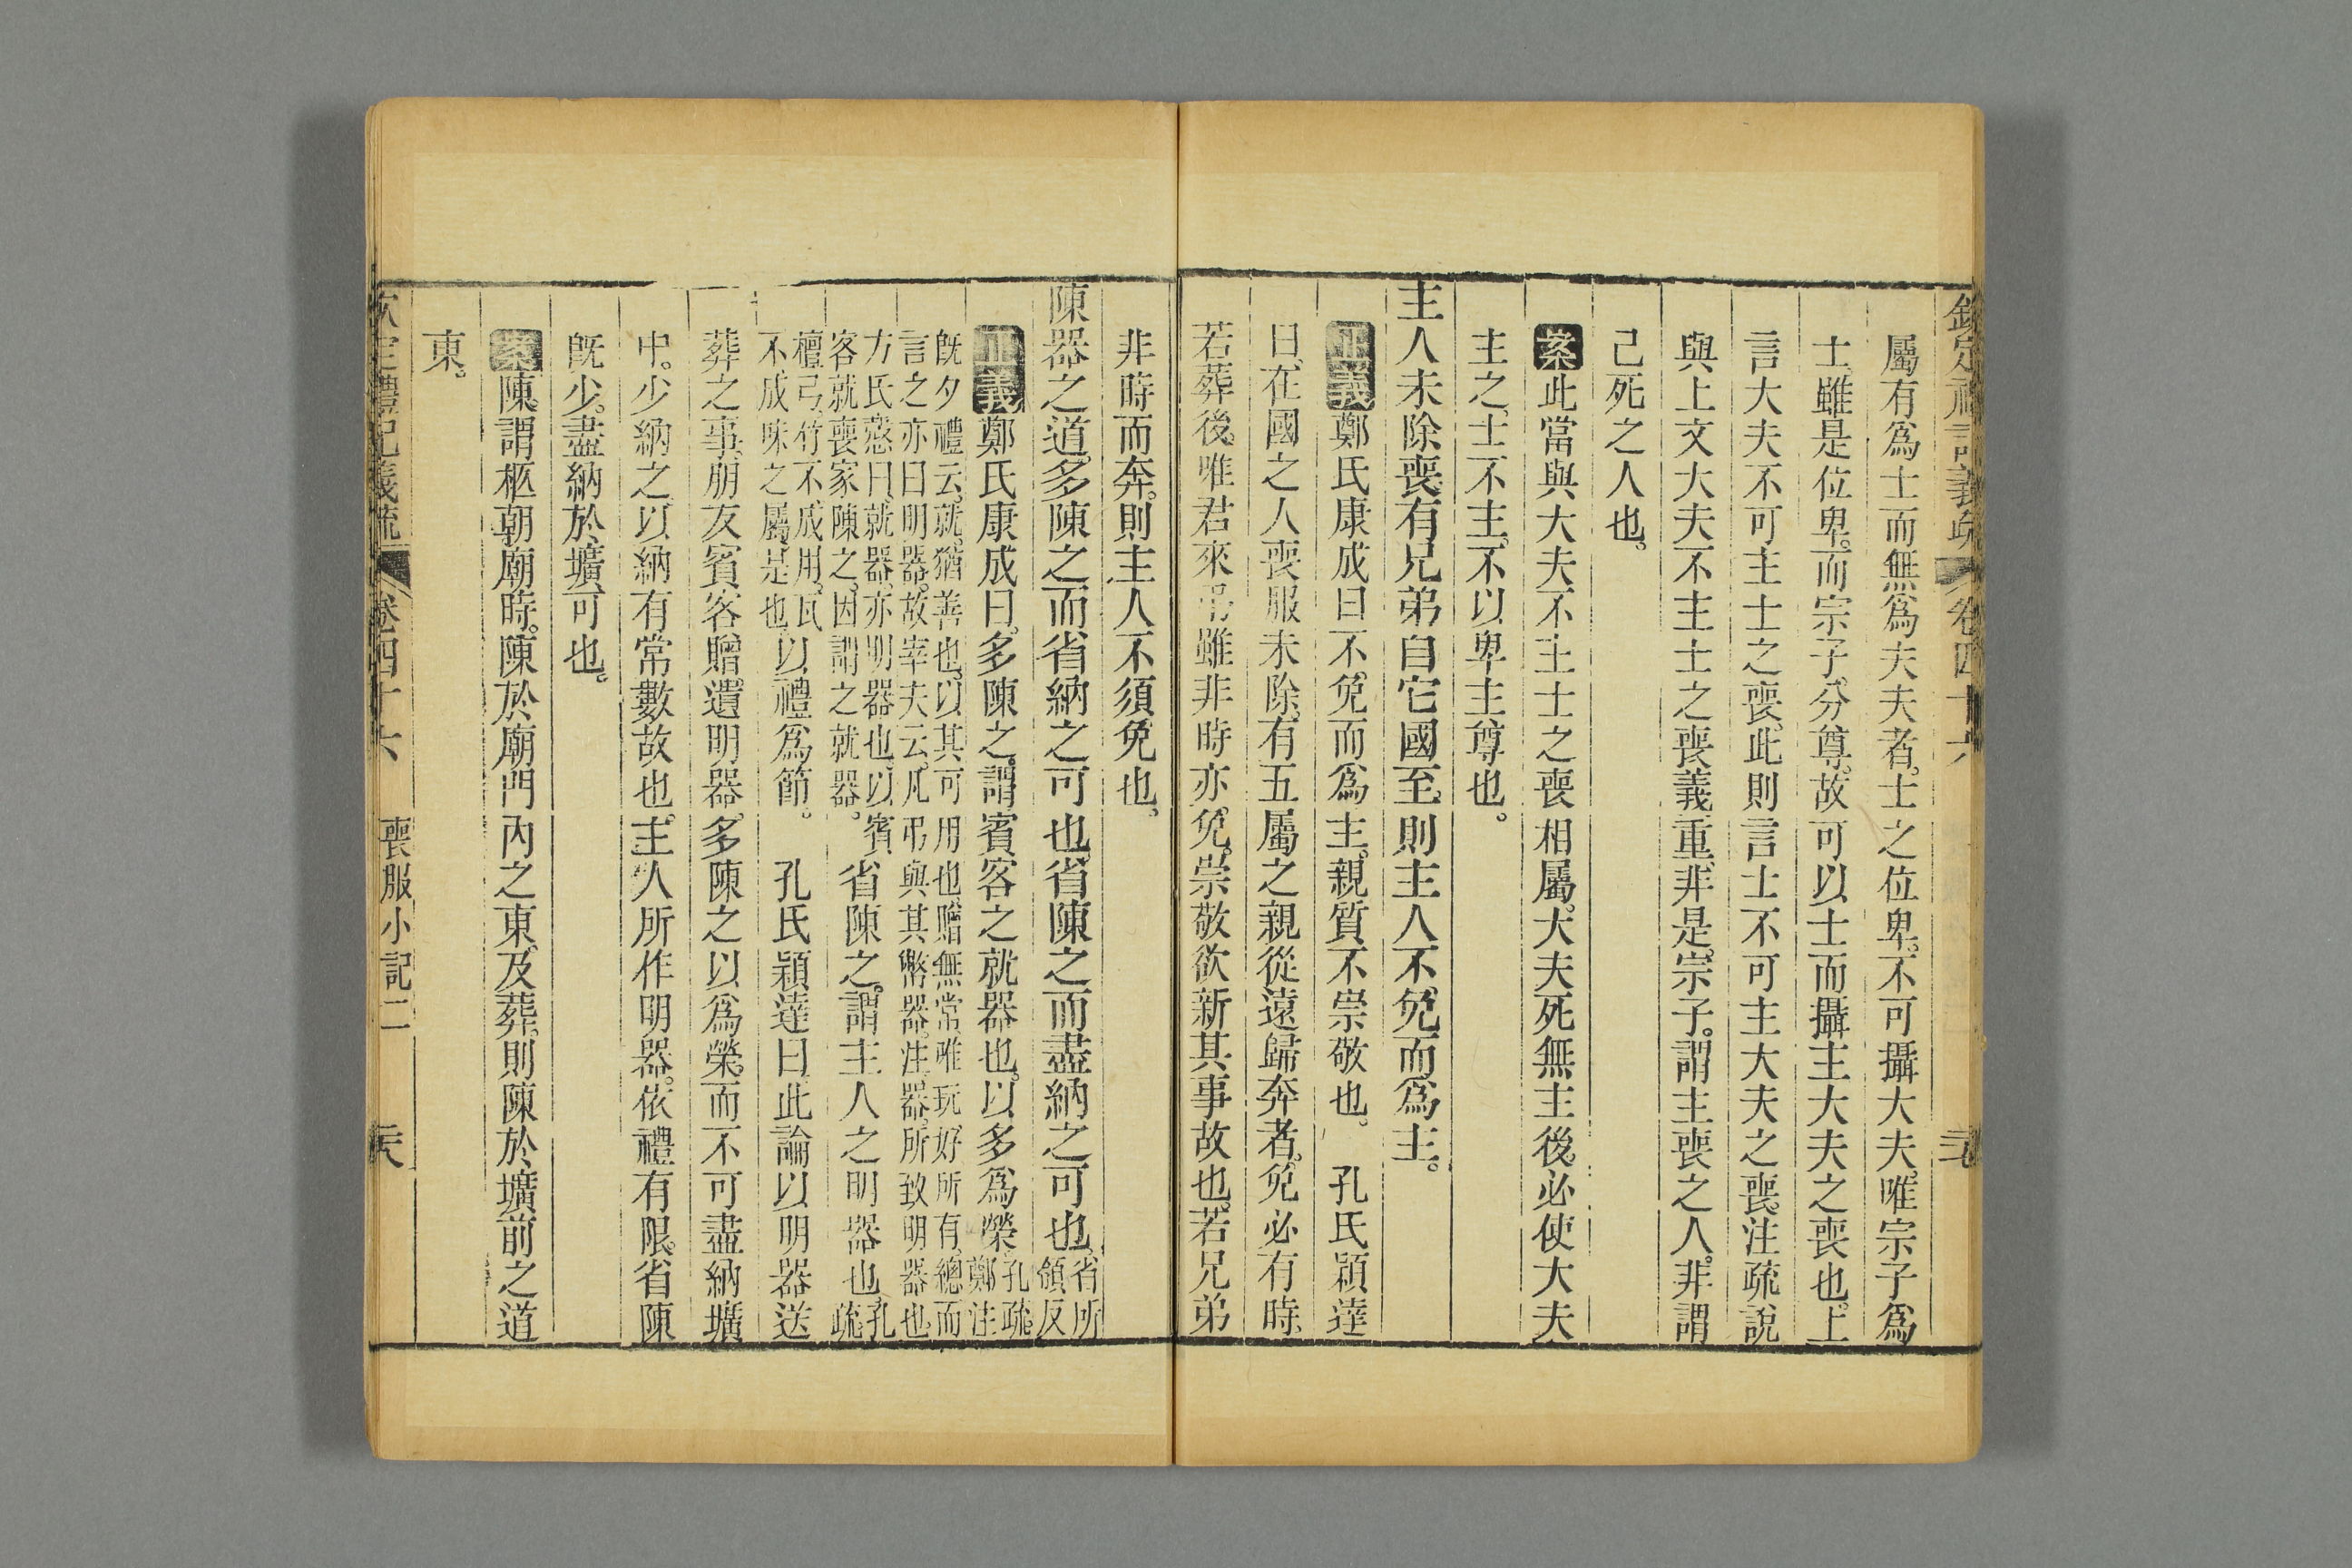 欽定禮記義疏 卷四十六
屬有爲士而無爲大夫者。士之位卑。不可攝大夫。唯宗子爲
士。雖是位卑。而宗子分尊。故可以士而攝主大夫之喪也。上
言大夫不可主士之喪。此則言士不可主大夫之喪。注疏說
與上文大夫不主士之喪義重。非是。宗子。謂主喪之人。非謂
己死之人也。
案此當與大夫不主士之喪相屬。大夫死無主後。必使大夫
主之。士不主。不以卑主尊也。
主人未除喪。有兄弟自它國至。則主人不免而爲主。
正義鄭氏康成曰。不免而爲主。親質不崇敬也。 孔氏穎達
曰。在國之人喪服未除。有五屬之親從遠歸奔者。免必有時。
若葬後。唯君來弔。雖非時亦免。崇敬欲新其事故也。若兄弟
非時而奔。則主人不須免也。
陳器之道。多陳之而省納之可也。省陳之而盡納之可也。省所
領反
正義鄭氏康成曰。多陳之。謂賓客之就器也。以多爲榮。孔疏。
鄭注
既夕禮云。就。猶善也。以其可用也。贈無常。唯玩好所有。總而
言之。亦曰明器。故宰夫云。凡弔與其幣器。注器。所致明器也。
方氏慤曰。就器。亦明器也。以賓
客就喪家陳之。因謂之就器。
省陳之。謂主人之明器也。孔
疏。
檀弓。竹不成用。瓦
不成味之屬。是也。
以禮爲節。 孔氏穎達曰。此論以明器送
葬之事。朋友賓客贈遺明器。多陳之以爲榮。而不可盡納壙
中。少納之。以納有常數故也。主人所作明器。依禮有限。省陳
既少。盡納於壙可也。
案陳。謂柩朝廟時。陳於廟門內之東。及葬。則陳於壙前之道
東。
欽定禮記義疏 卷四十六 喪服小記二